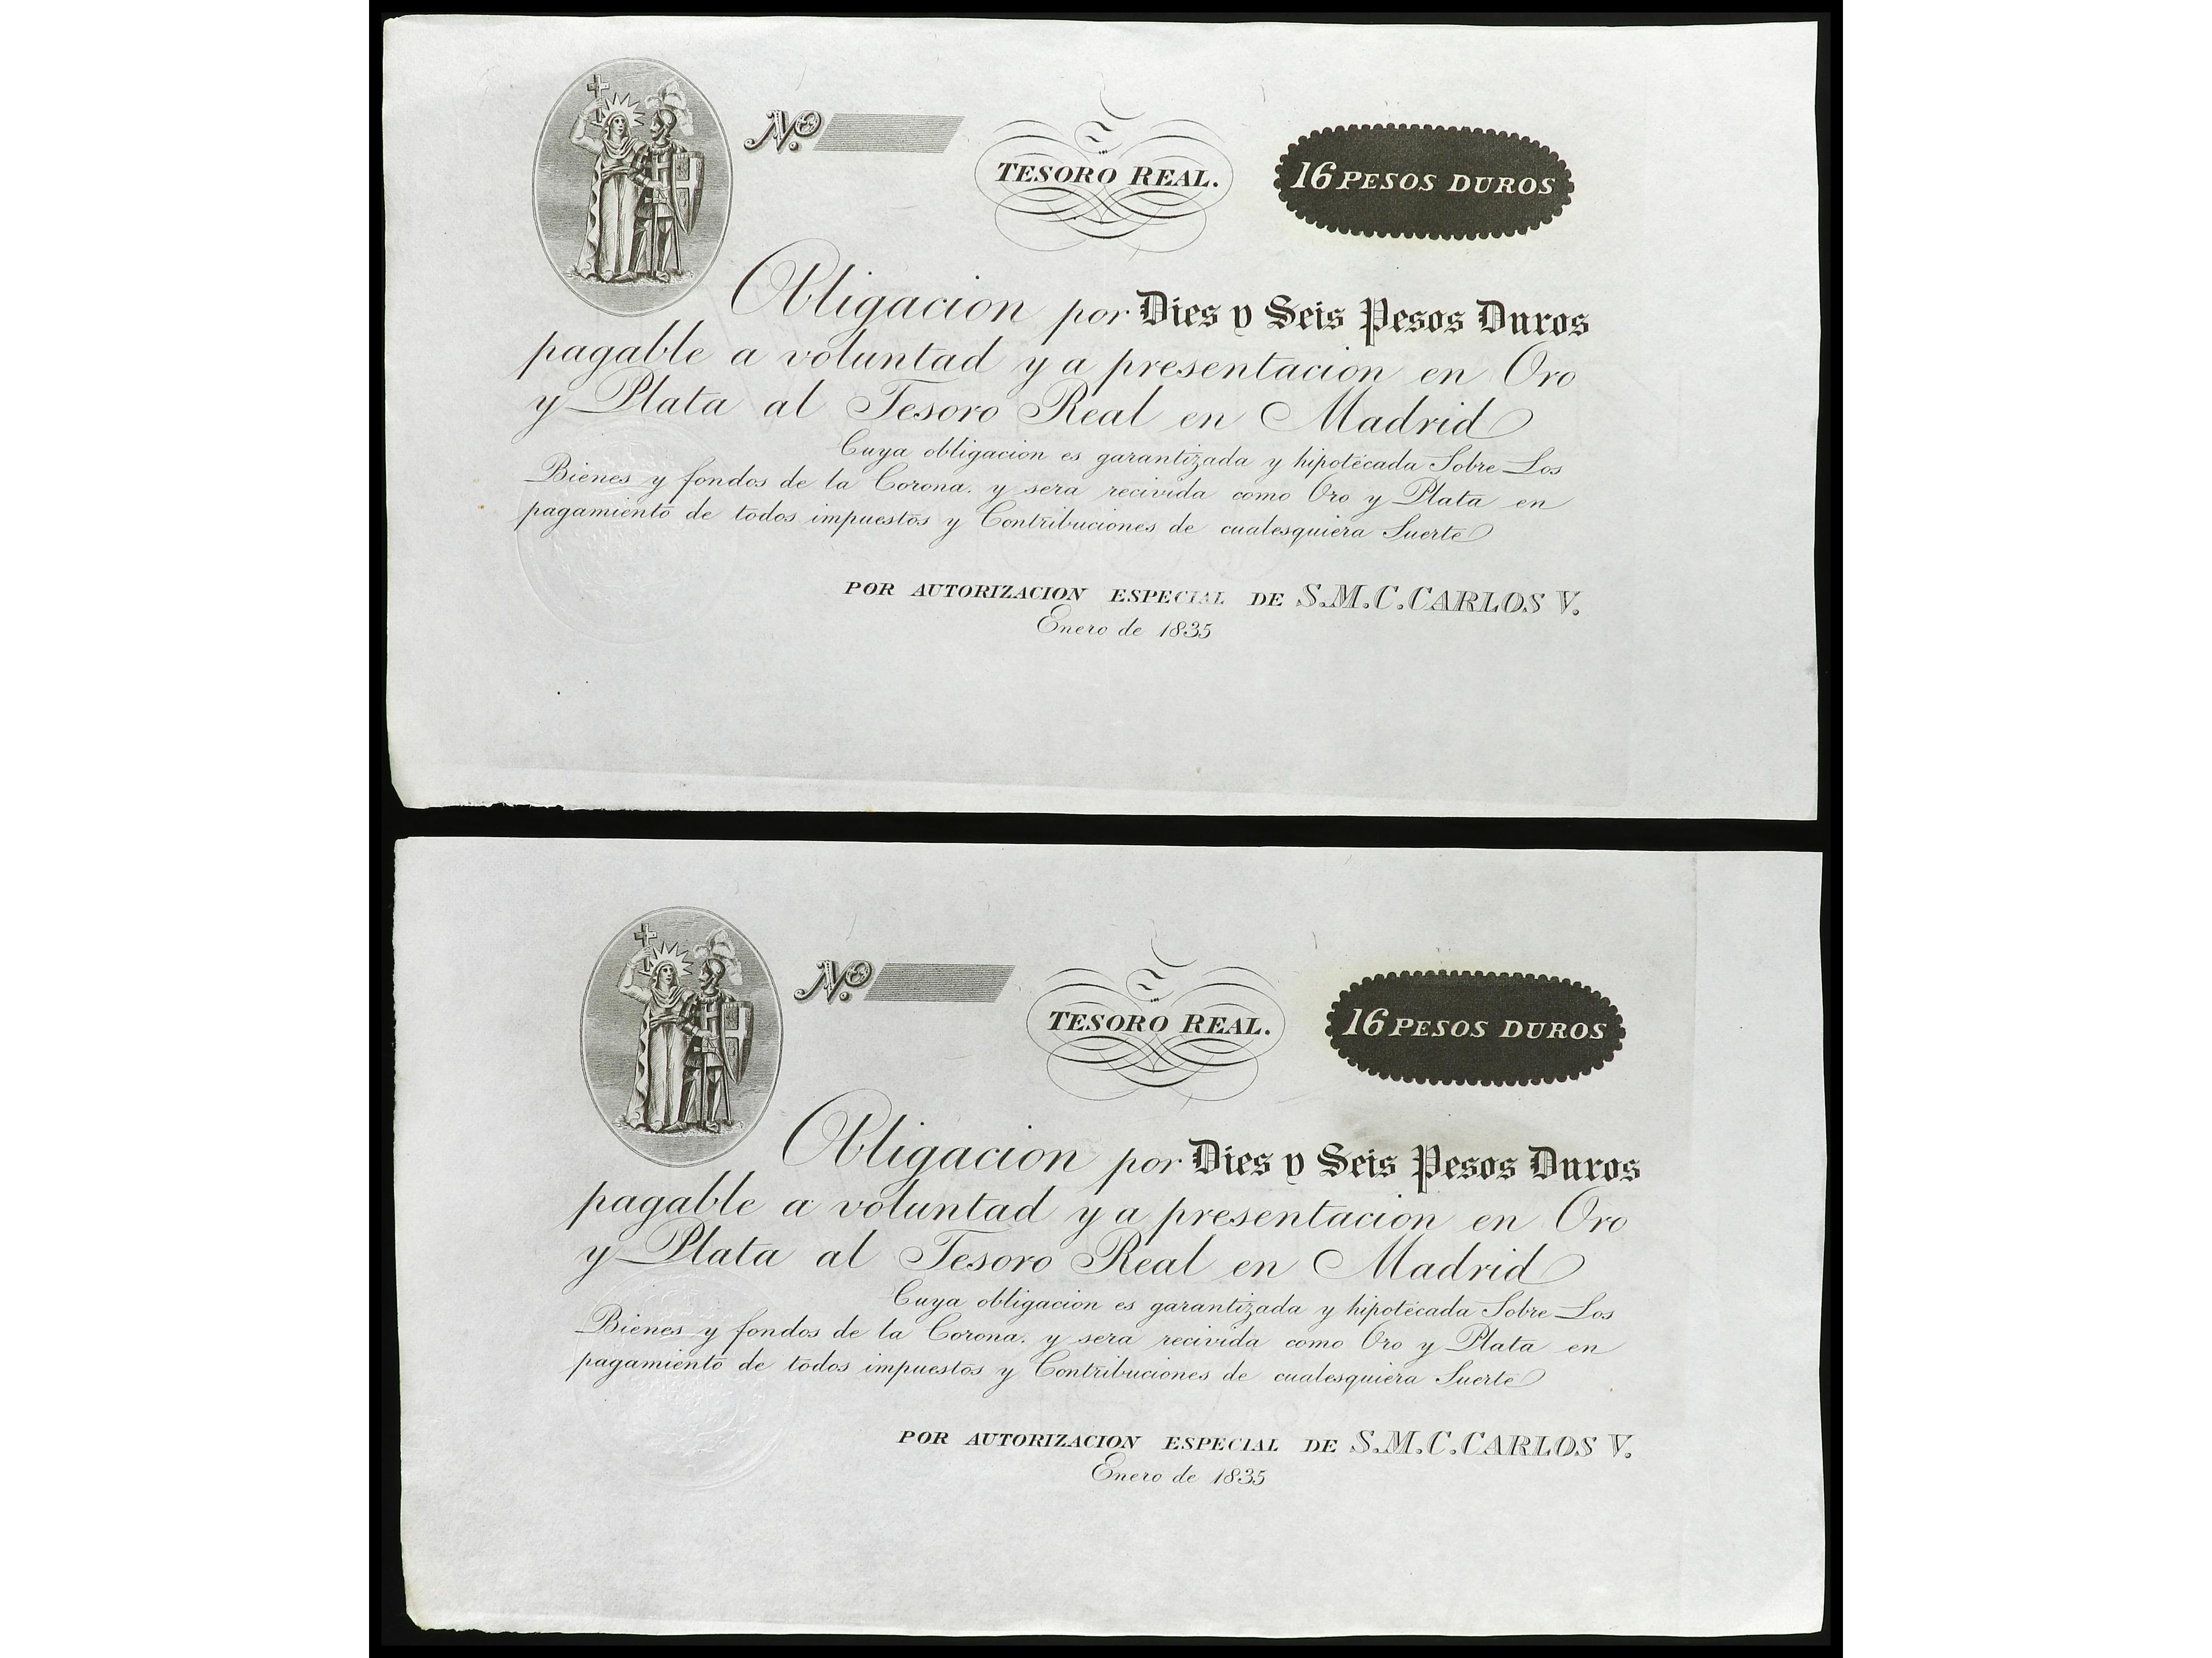 No.
TESORO REAL.
16 PESOS DUROS
Obligacion por Dies y Seis Pesos Duros
pagable a voluntad y a presentacion en Oro
y Plata al Tesoro Real en Madrid
Cuya obligacion es garantizada y hipotecada Sobre Los
Bienes y fondos de la Corona. y sera recivida como Oro y Plata en
pagamiento de todos impuestos y Contribuciones de cualesquiera Suerte
POR AUTORIZACION ESPECIAL DE S.M.C. CARLOS V.
Enero de 1835
No.
TESORO REAL.
16 PESOS DUROS
Obligacion por Dies y Seis Pesos Duros
pagable a voluntad y a presentacion en Oro
y Plata al Tesoro Real en Madrid
Cuya obligacion es garantizada y hipotecada Sobre Los
Bienes y fondos de la Corona. y sera recivida como Oro y Plata en
pagamiento de todos impuestos y Contribuciones de cualesquiera Suerte
POR AUTORIZACION ESPECIAL DE S.M.C. CARLOS V.
Enero de 1835